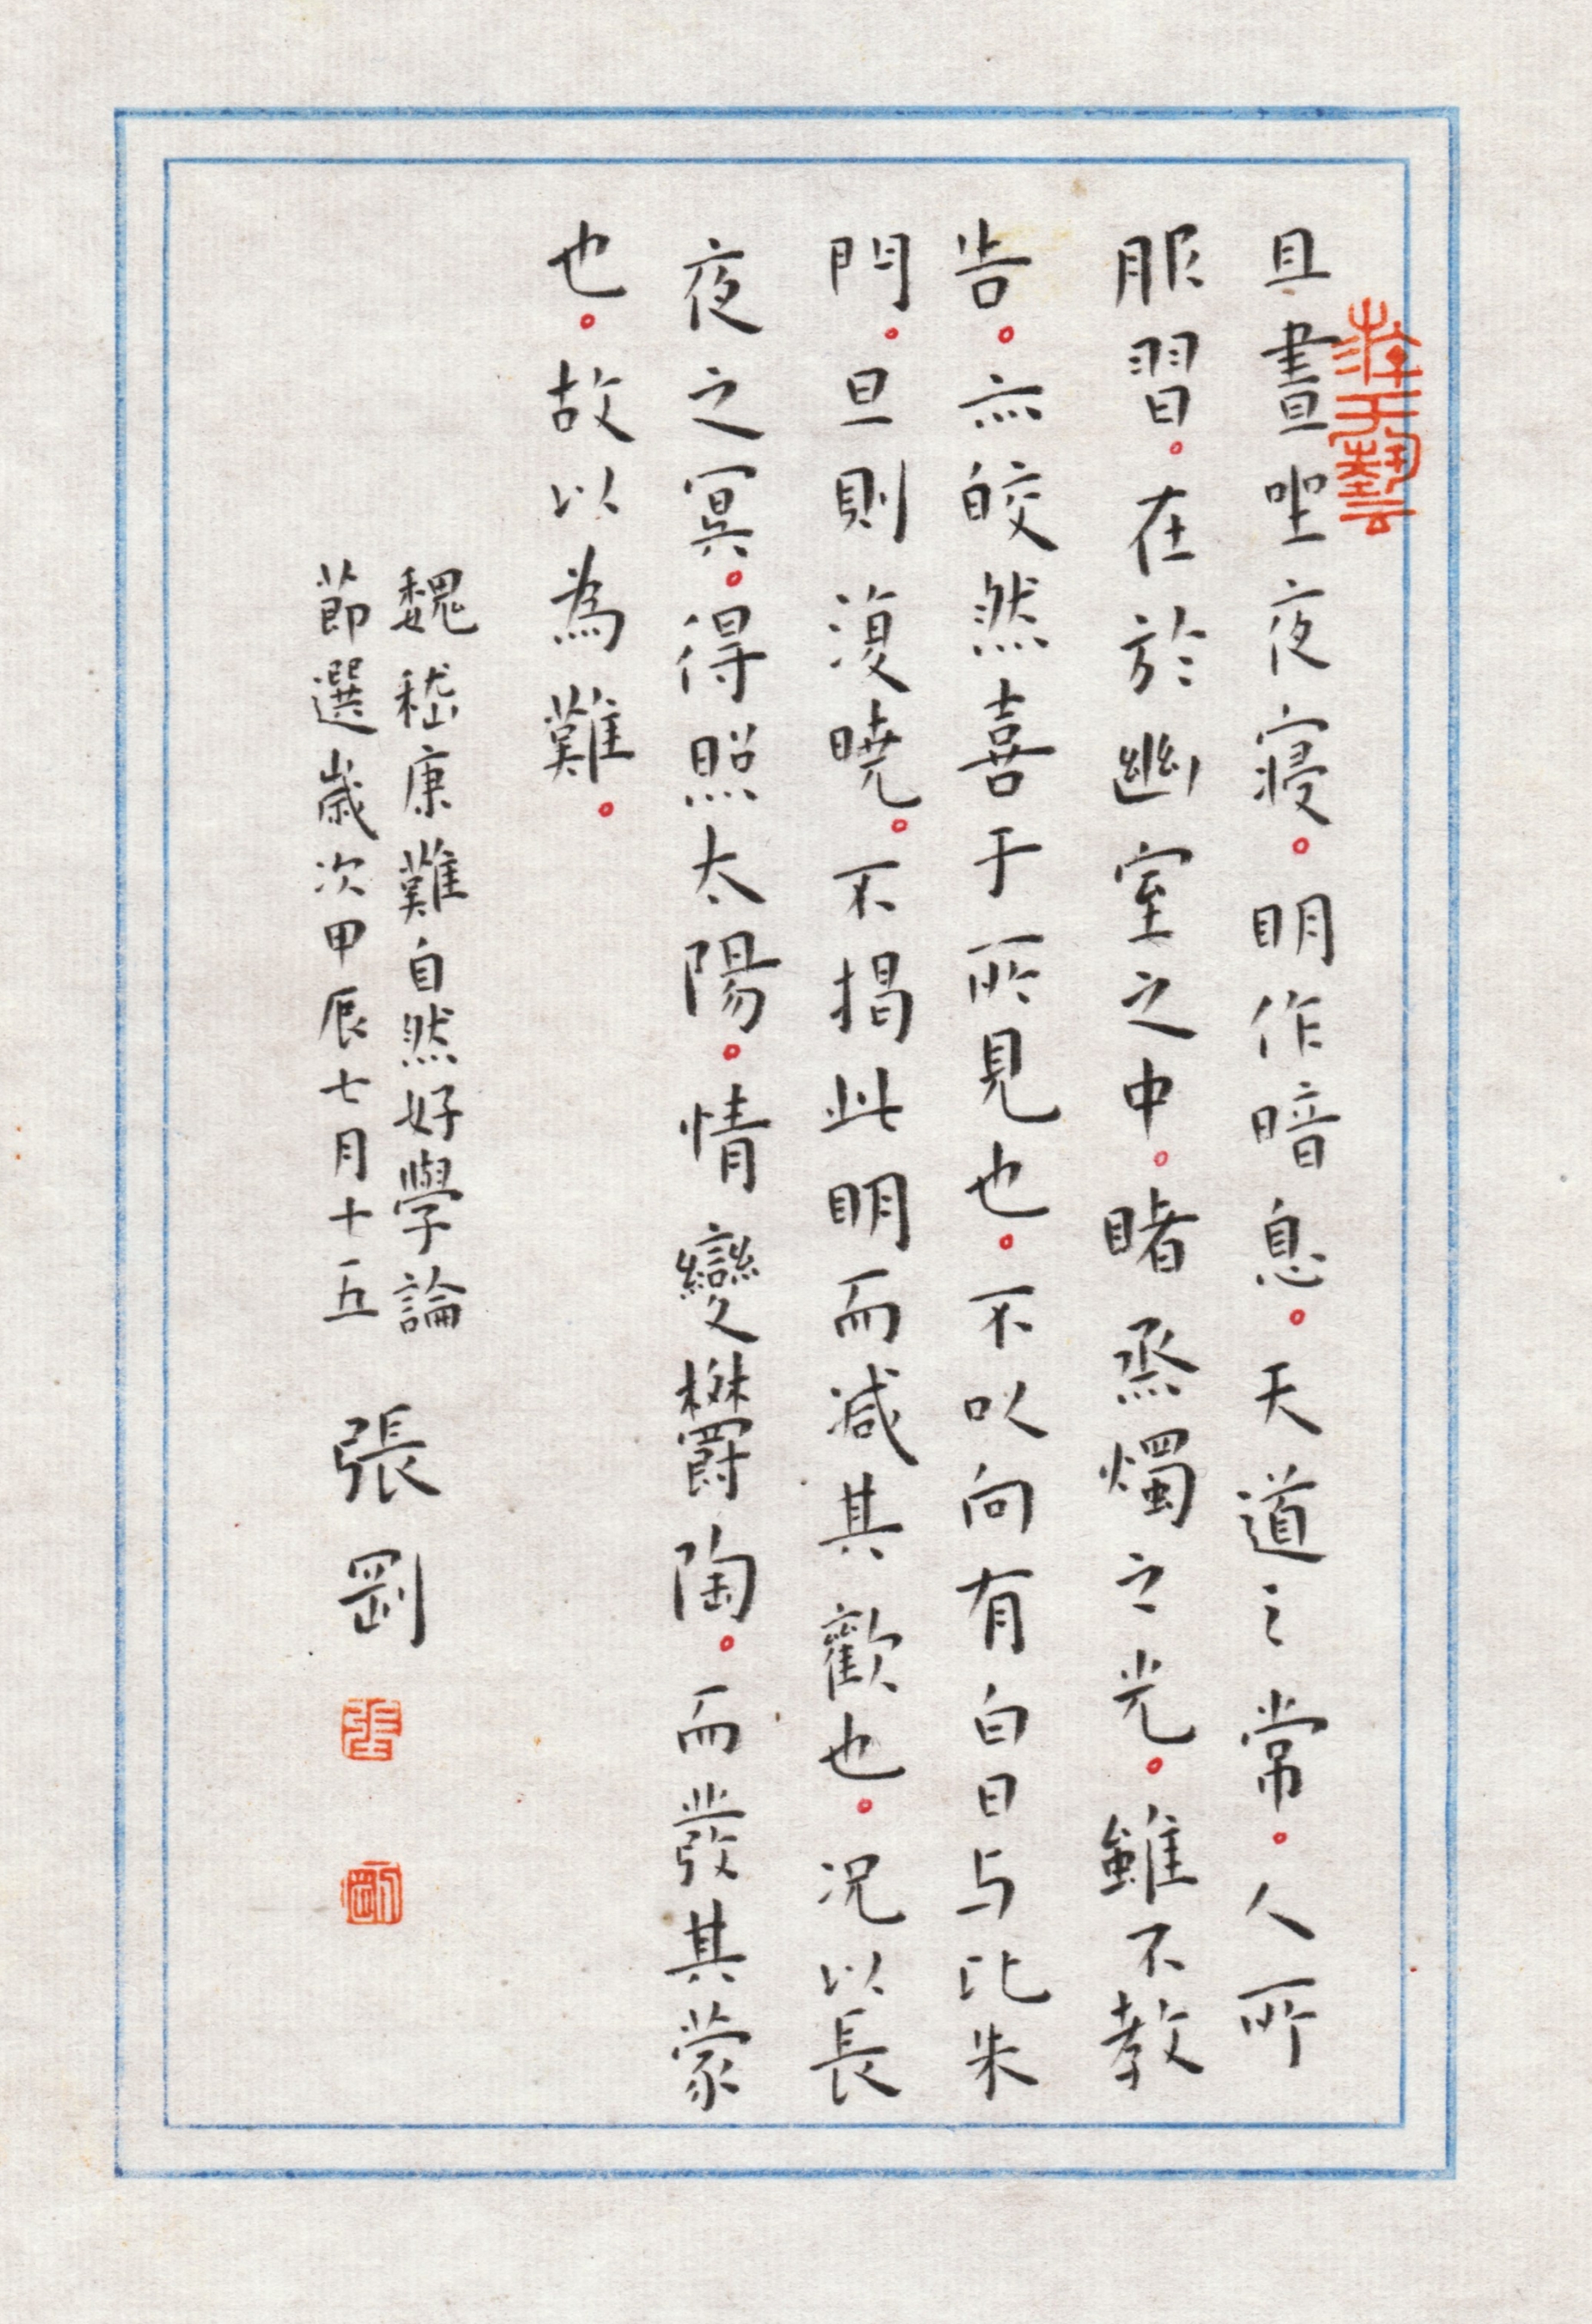 且晝坐夜寢。明作暗息。天道之常。人所
服習。在於幽室之中。睹烝燭之光。雖不教
告。亦皎然喜于所見也。不以向有白日与比朱
門。旦則復曉。不揭此明而减其歡也。况以長
夜之冥。得照太陽。情變欝陶。而發其蒙
也。故以為難。
魏嵇康難自然好學論
節選歲次甲辰七月十五
張剛
游于藝
張
剛